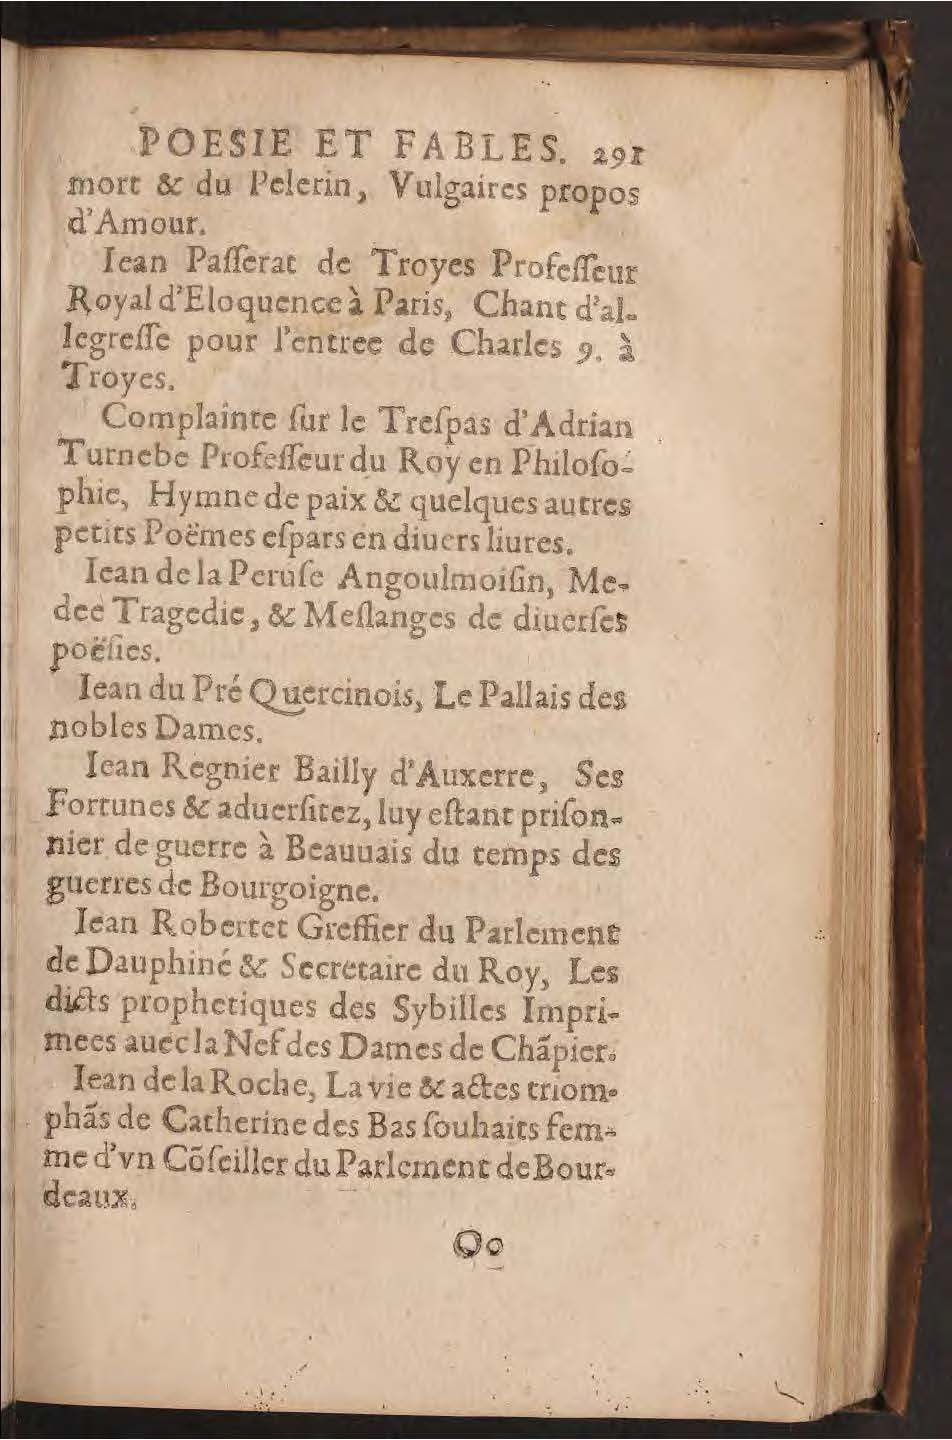 POESIE ET FABLES. 291
mort & du Pelerin, Vulgaires propos
d'Amour.
Iean Paſſerat de Troyes Profeſſeur
Royal d'Eloquence à Paris, Chant d'al-
legreſſe pour l'entree de Charles 9. à
Troyes.
Complainte ſur le Treſpas d'Adrian
Turnebe Profeſſeur du Roy en Philoſo-
phie, Hymne de paix & quelques autres
petits Poëmes eſpars en diuers liures.
Iean de la Peruſe Angoulmoiſin, Me-
dee Tragedie, & Meſlanges de diuerſes
poëſies.
Iean du Pré Quercinois, Le Pallais des
nobles Dames.
Iean Regnier Bailly d'Auxerre, Ses
Fortunes & aduerſitez, luy eſtant priſon-
nier de guerre à Beauuais du temps des
guerres de Bourgoigne.
Iean Robertet Greffier du Parlement
de Dauphiné & Secretaire du Roy, Les
dicts prophetiques des Sybilles Impri-
mees auec la Nef des Dames de Chãpier.
Iean de la Roche, La vie & actes triom-
phãs de Catherine des Bas ſouhaits fem-
me d'vn Cõſeiller du Parlement de Bour-
deaux.
Oo